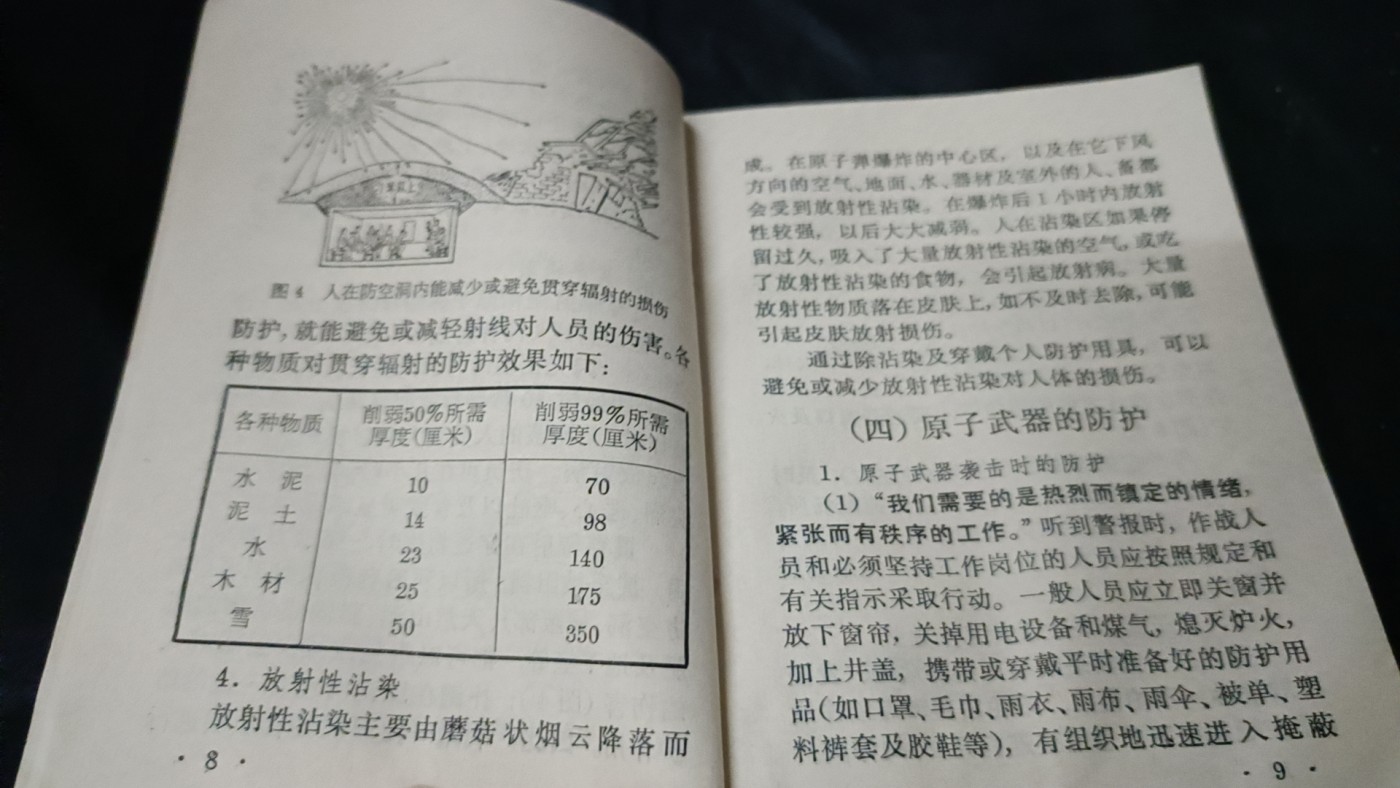 图4 人在防空洞内能减少或避免贯穿辐射的损伤
防护,就能避免或减轻射线对人员的伤害。各
种物质对贯穿辐射的防护效果如下：
各种物质 削弱50%所需厚度(厘米) 削弱99%所需厚度(厘米)
水泥 10 70
泥土 14 98
水 23 140
木材 25 175
雪 50 350
4. 放射性沾染
放射性沾染主要由蘑菇状烟云降落而
· 8 ·
成。在原子弹爆炸的中心区，以及在它下风
方向的空气、地面、水、器材及室外的人、畜都
会受到放射性沾染。在爆炸后1小时内放射
性较强，以后大大减弱。人在沾染区如果停
留过久,吸入了大量放射性沾染的空气,或吃
了放射性沾染的食物，会引起放射病。大量
放射性物质落在皮肤上,如不及时去除,可能
引起皮肤放射损伤。
通过除沾染及穿戴个人防护用具，可以
避免或减少放射性沾染对人体的损伤。
(四) 原子武器的防护
1. 原子武器袭击时的防护
(1) “我们需要的是热烈而镇定的情绪,
紧张而有秩序的工作。”听到警报时，作战人
员和必须坚持工作岗位的人员应按照规定和
有关指示采取行动。一般人员应立即关窗并
放下窗帘，关掉用电设备和煤气，熄灭炉火，
加上井盖，携带或穿戴平时准备好的防护用
品(如口罩、毛巾、雨衣、雨布、雨伞、被单、塑
料裤套及胶鞋等)，有组织地迅速进入掩蔽
· 9 ·